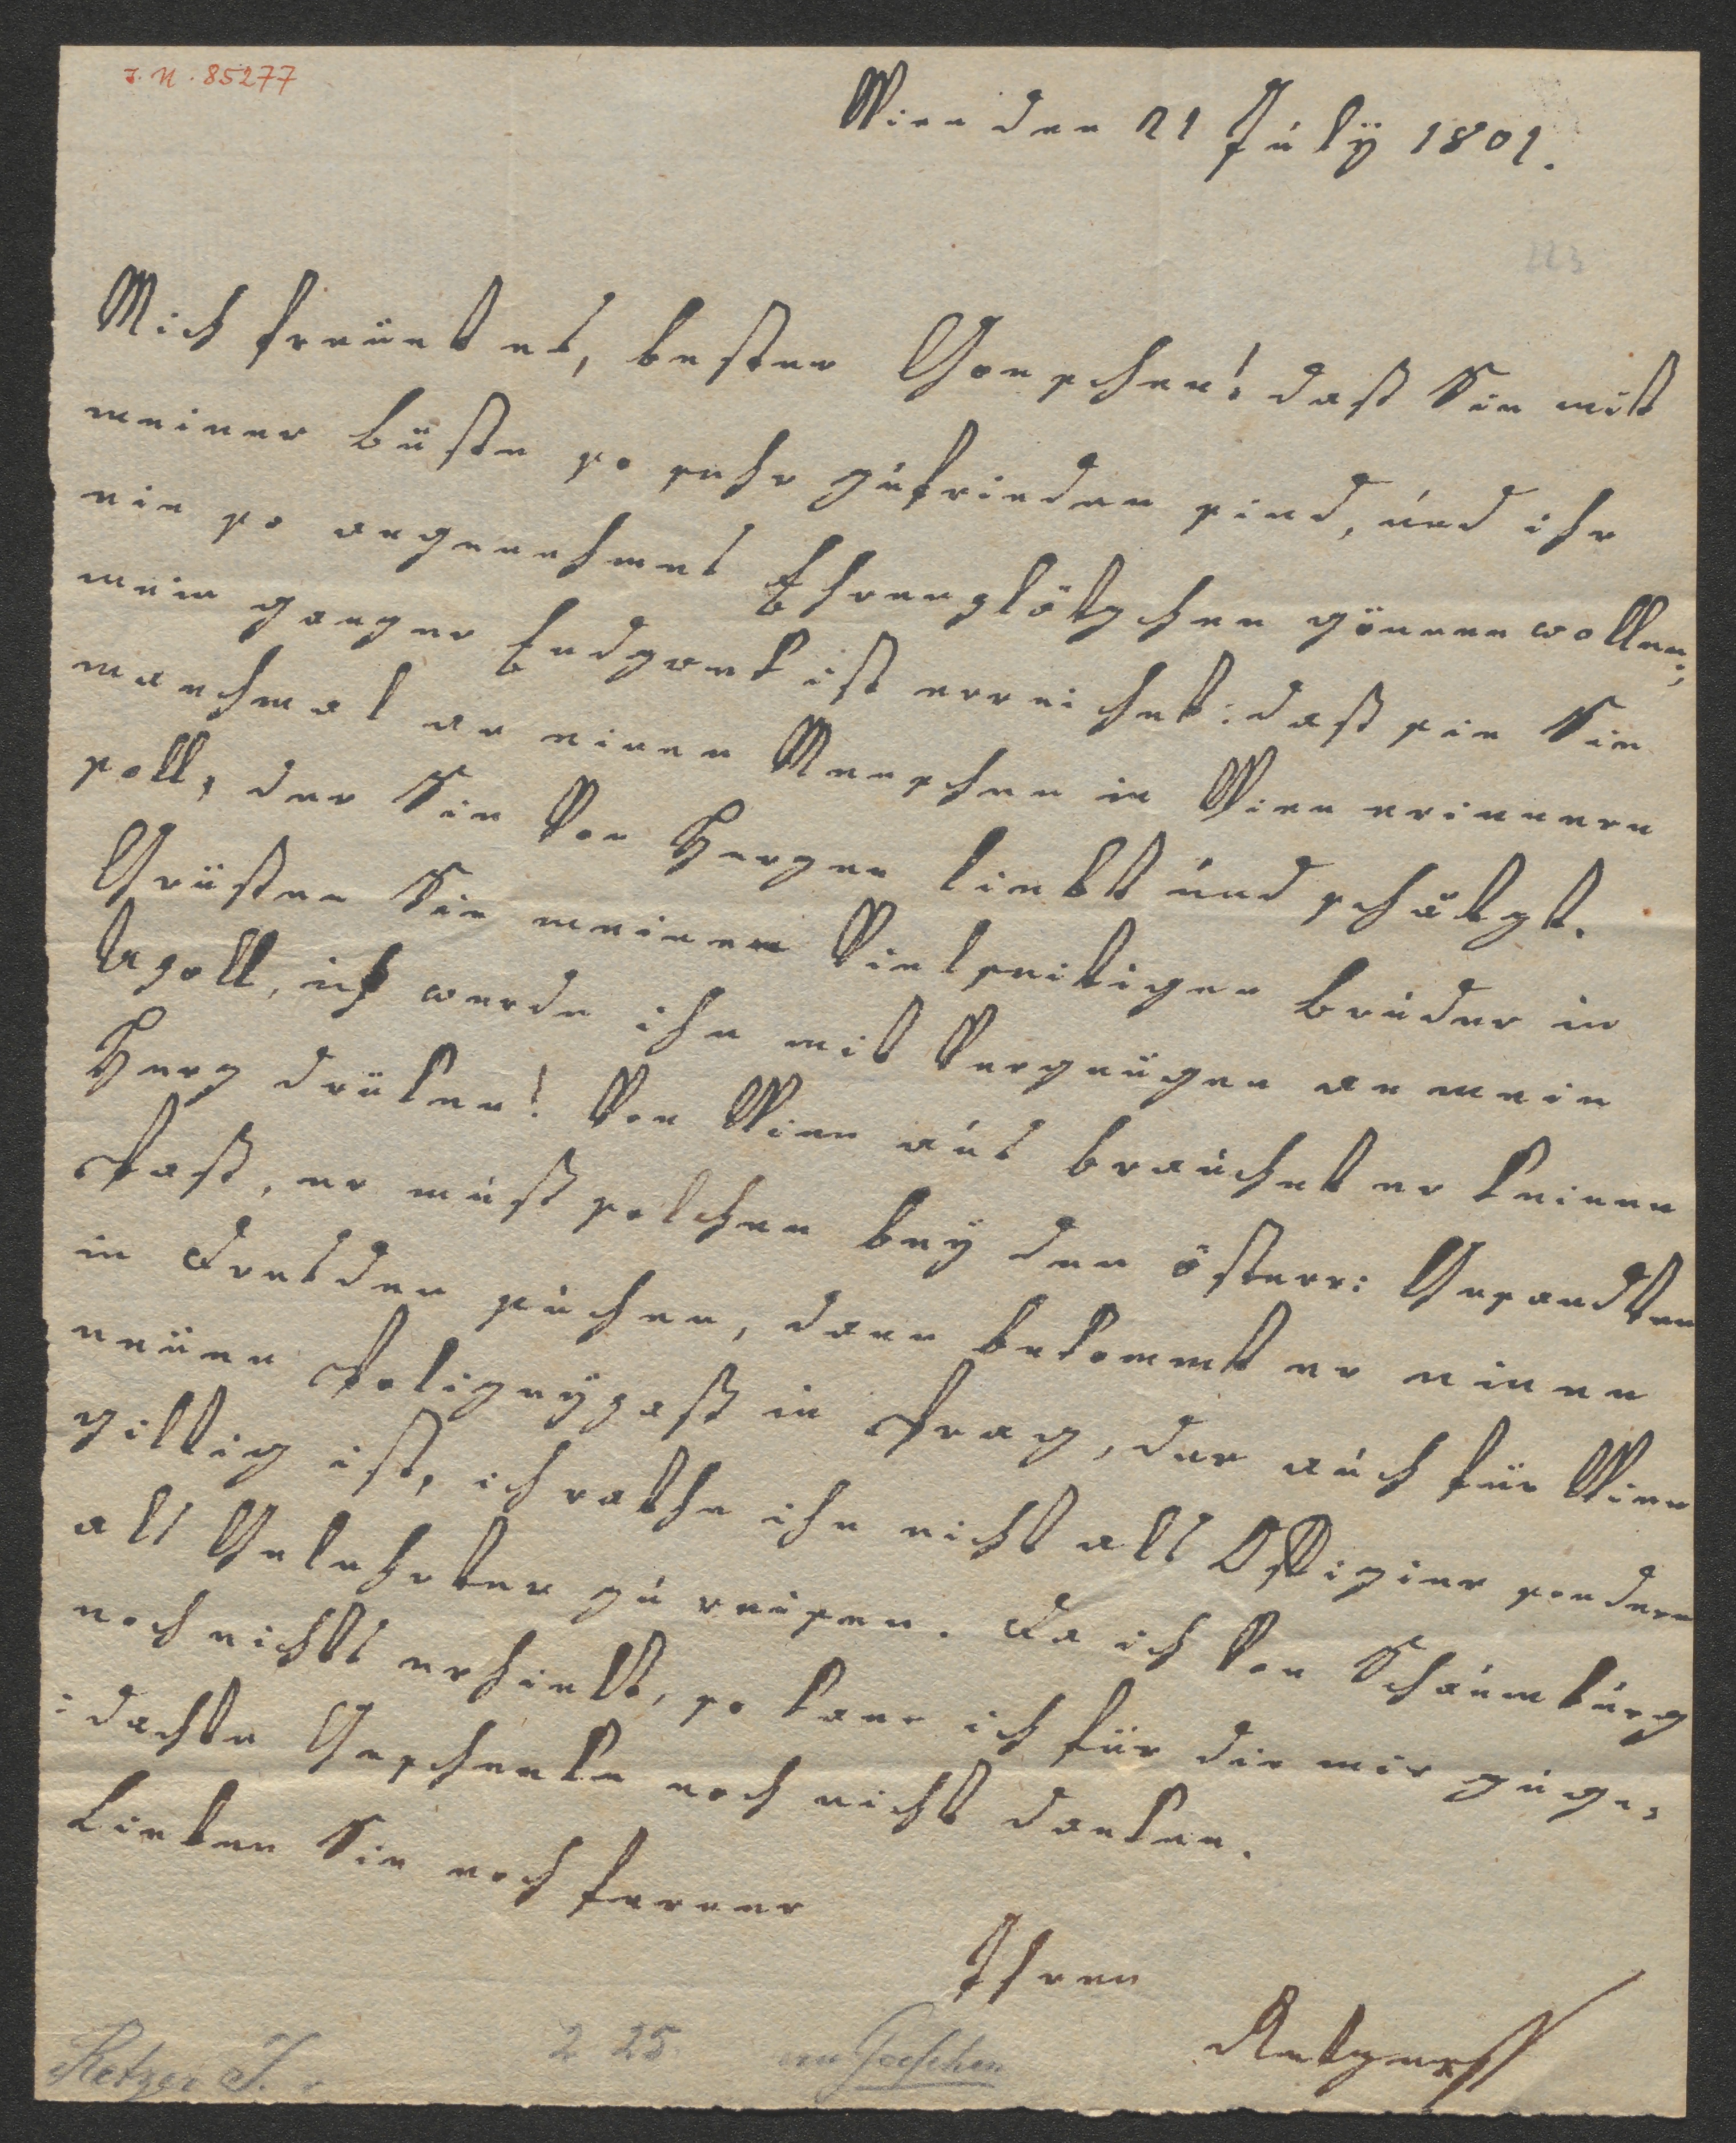 I. N. 85277
Wien den 21 July 1801.
Mich freuet es, bester Goeschen! daß Sie mit
meiner büste so sehr zufrieden sind, und ihr
ein so angenehmes Ehrenplätzchen gönnen wollen;
mein ganzer Endzwek ist erreichet: daß sie Sie
manchmal an einen Menschen in Wien erinnern
soll, der Sie von Herzen liebt und schätzt.
Grüßen Sie meinen vielseitigen bruder in
Apoll, ich werde ihn mit Vergnügen an mein
Herz drüken! Von Wien aus brauchet er keinen
Paß, er muß solchen bey den österr: Gesandten
in Dresden suchen, dann bekommt er einen
neüen Polizeypaß in Prag, der auch für Wien
giltig ist, ich rathe ihn nicht als Offizier sondern
als Gelehrter zu reisen. Da ich von Schaumburg
noch nichts erhielt, so kann ich für die mir zuge-
:dachte Geschenke noch nicht danken.
Lieben Sie noch ferner
Ihren
Retzer
Retzer J.
2 25
an Goeschen